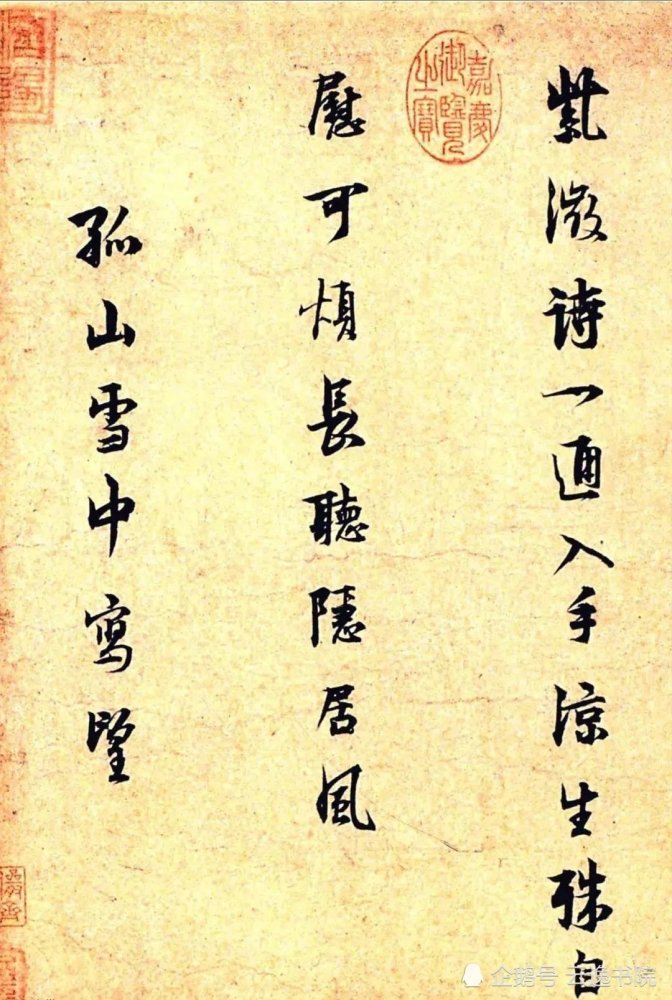 紫微詩一通入手涼生殊自
慰可煩長聽隱居風
孤山雪中寫望
嘉慶御覽之寶
企鹅号 云逸书院